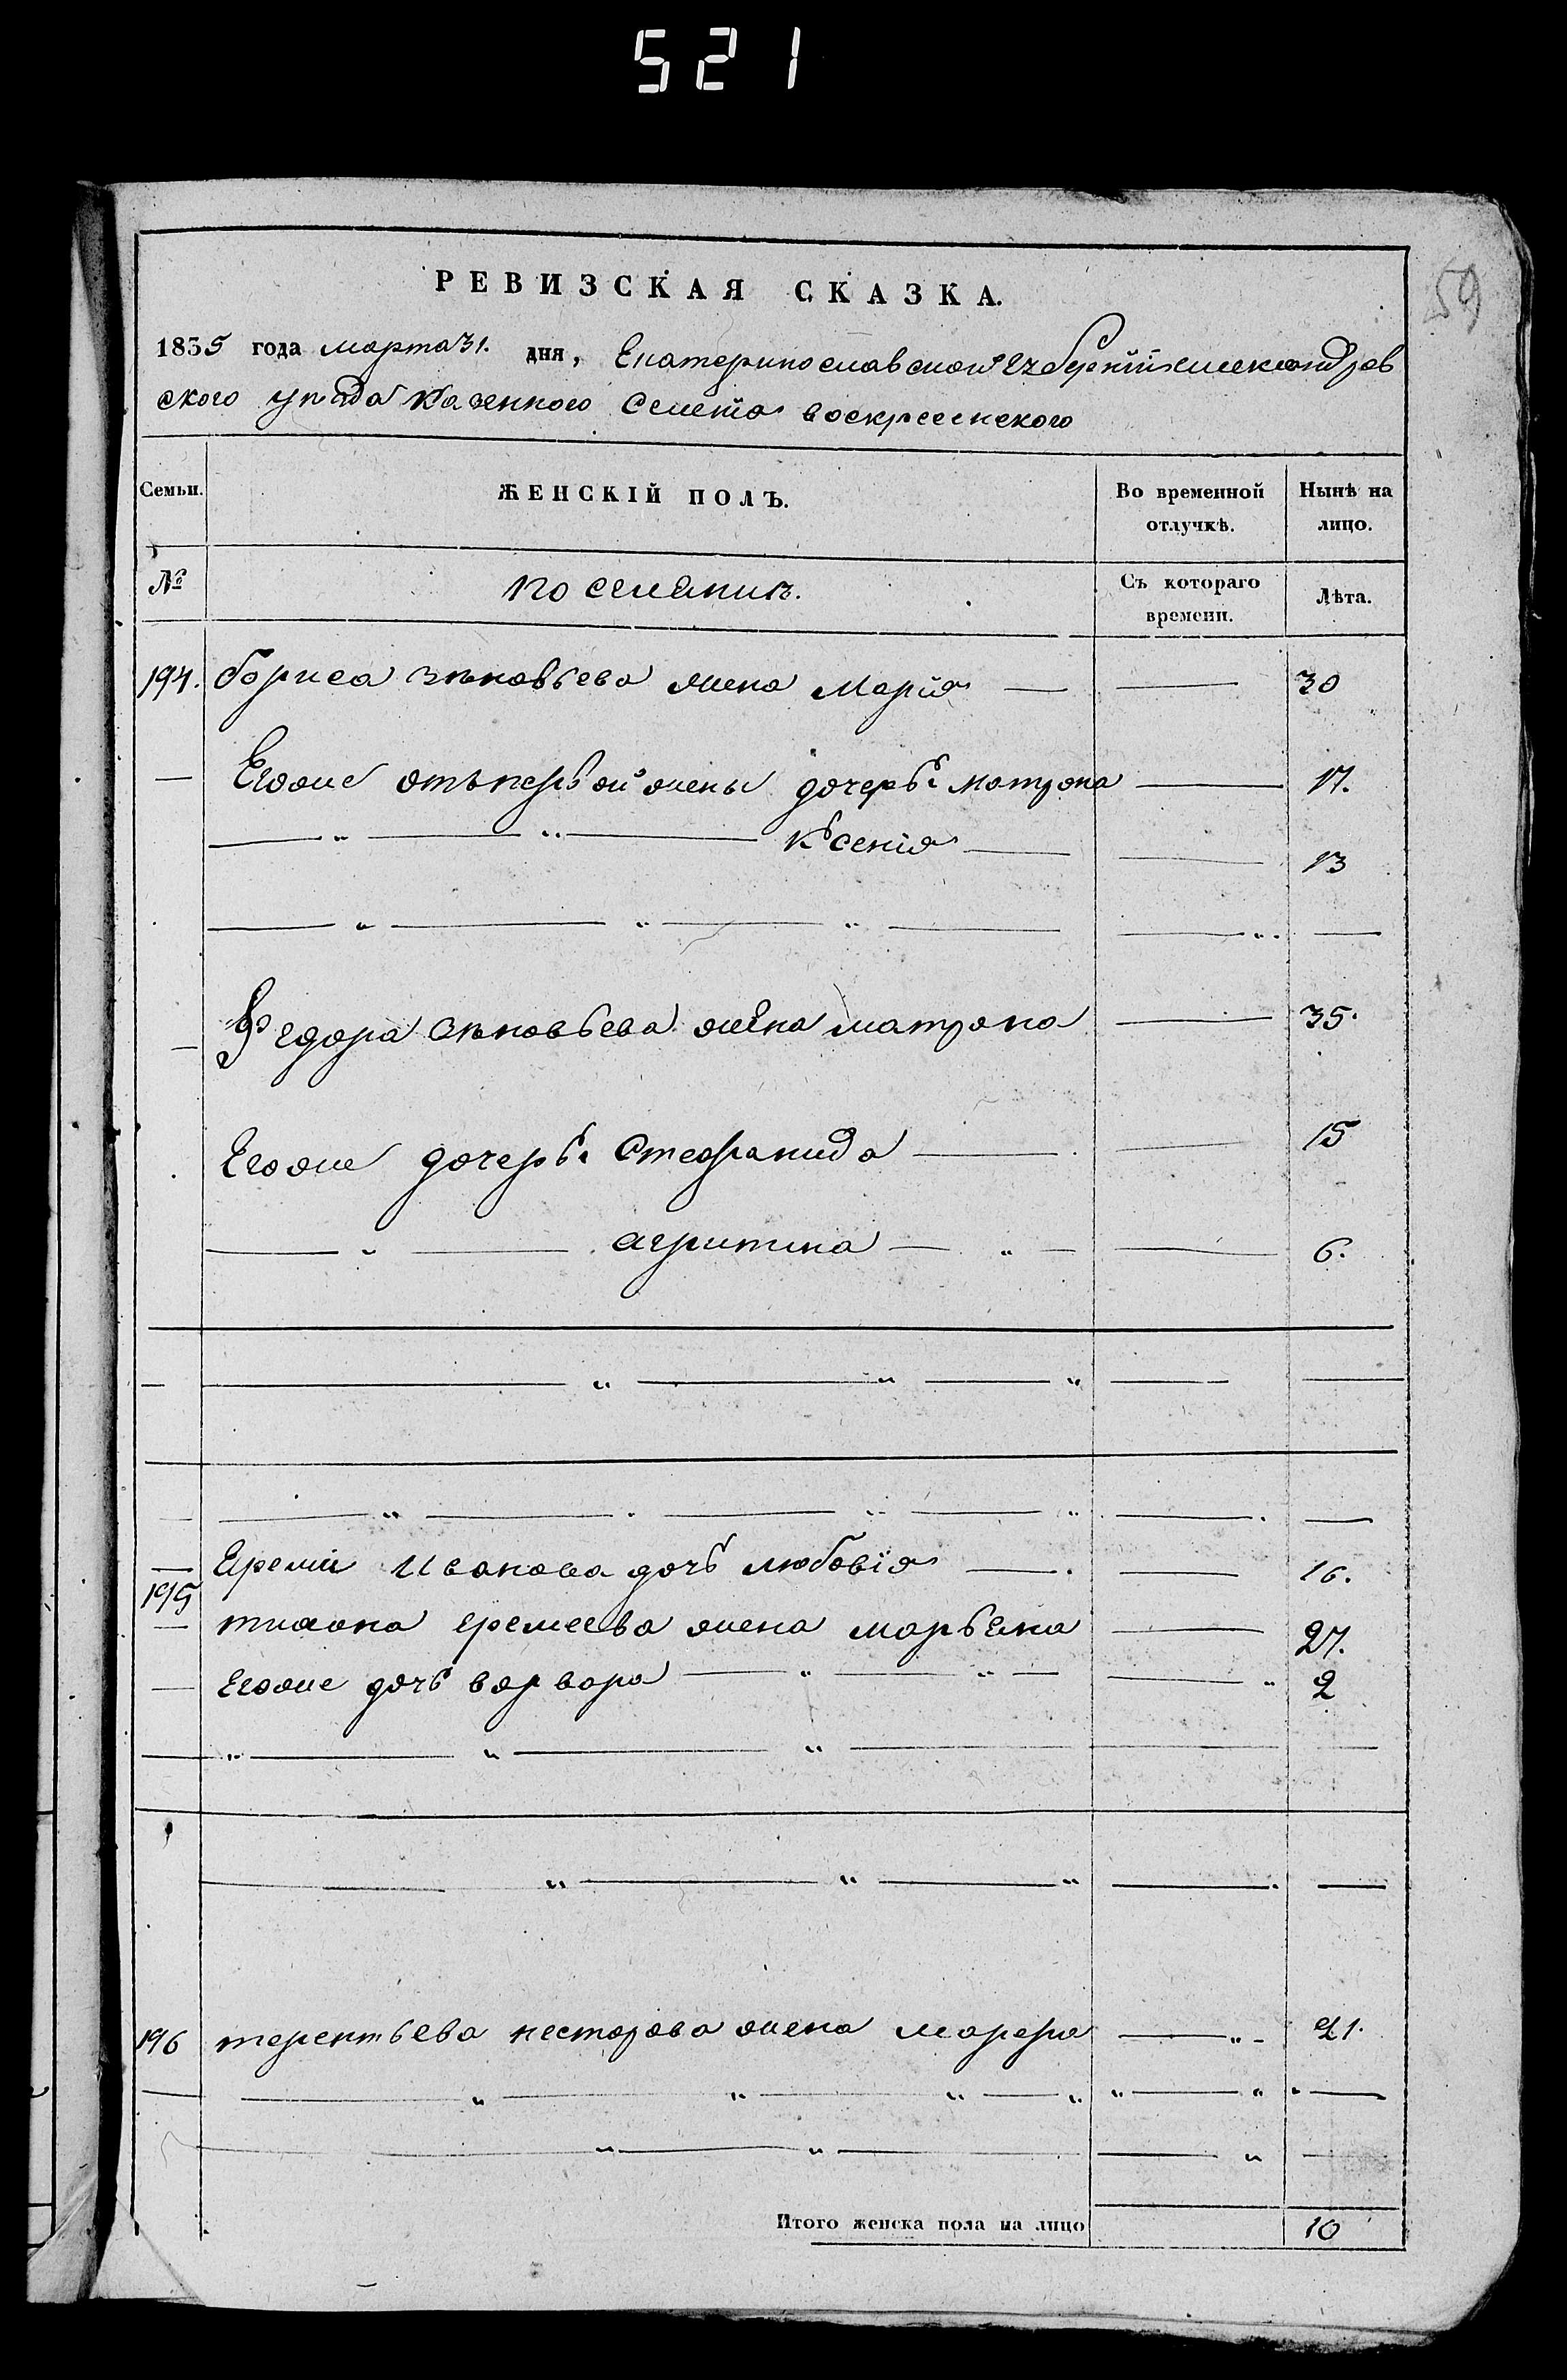 521
59
РЕВИЗСКАЯ СКАЗКА.
1835 года марта 31. дня, Екатеринославской губерніи александров
ского уѣзда Казенного Селенія воскресенского
Семьи. ЖЕНСКІЙ ПОЛЪ. Во временной отлучкѣ. Нынѣ на лицо.
№ поселянъ. Съ котораго времени. Лѣта.
194. бориса зѣновьева жена Марія — — 30
— Егоже отъ первой жены дочерь: матрона — 17.
— " — " — Ксенія — — 13
— " — " — " — — " . —
— Федора зѣновьева жена матрона — 35.
Егоже дочерь: Стефанида — — 15
— " — агрипина — " — — 6.
— — " — " — " — —
— — " — . — " — " . — . —
— Еремія Иванова дочь любовія — . — 16.
195
— тихона еремеева жена марьена — 27.
— Егоже дочь варвара — " — " — — " 2
— " — " — " — — —
— " — " — " — . —
196 терентьева несторова жена марфа — " - 21.
— — " — " — " — " " — " " —
— " — " — — " —
Итого женска пола на лицо 10